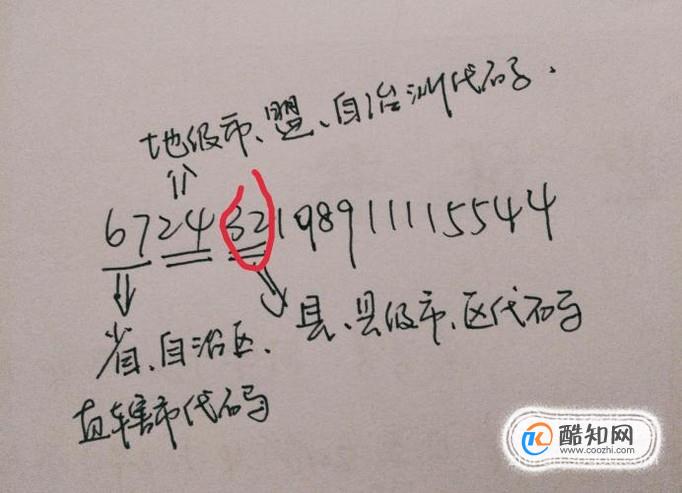 地级市、盟、自治州代码.
672432198911115544
省、自治区、
直辖市代码
县、县级市、区代码
酷知网
www.coozhi.com